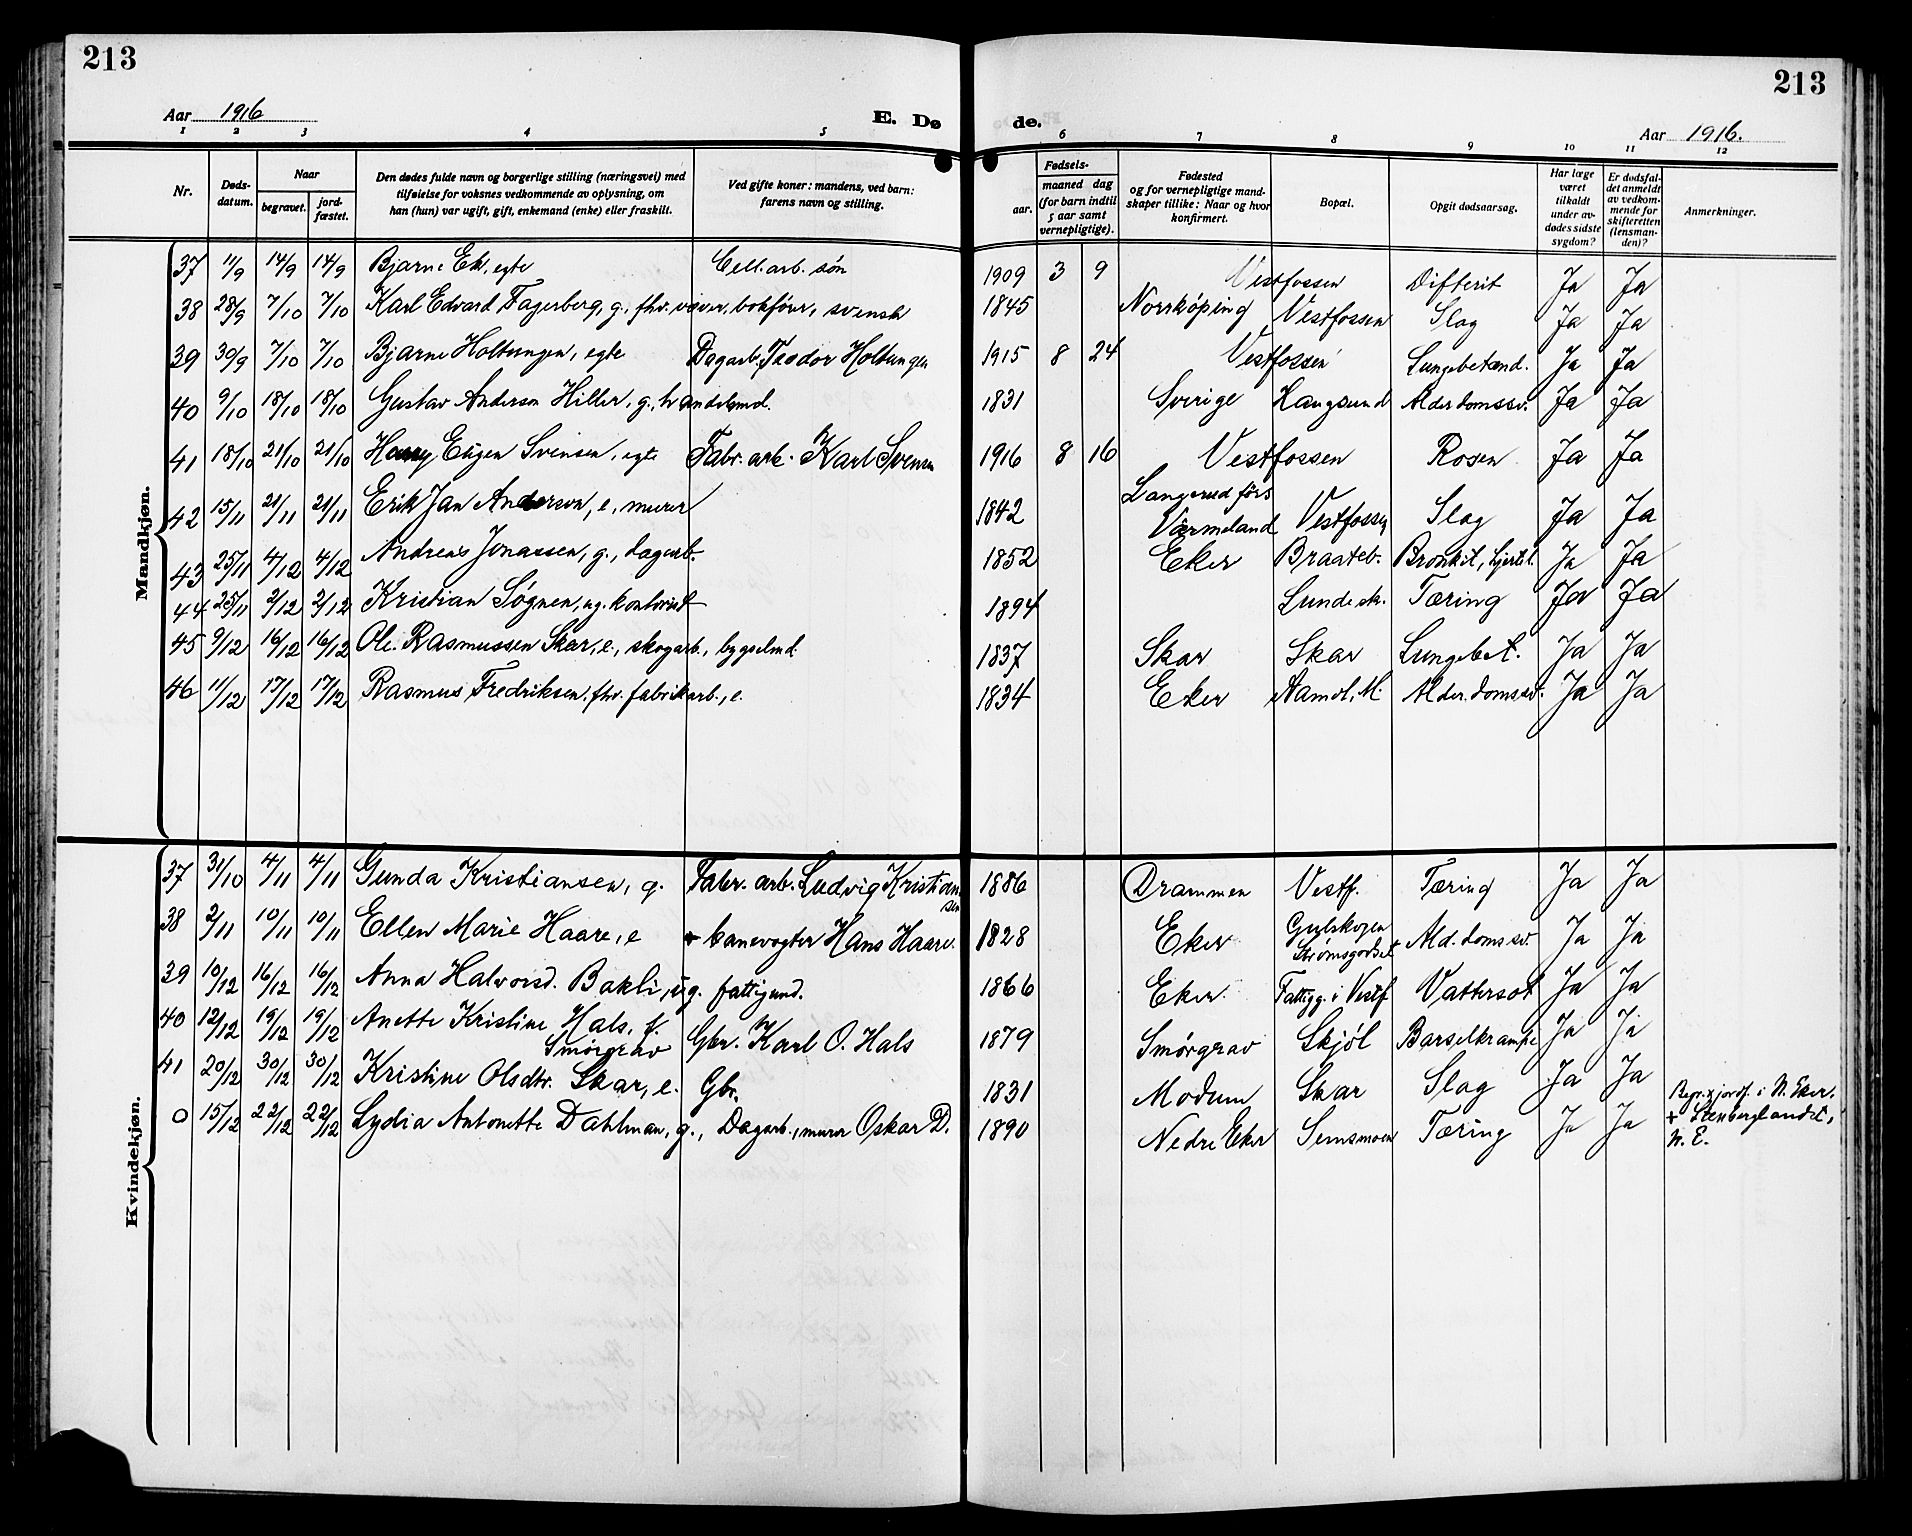 213
213
Aar 1916
E. Dø
de.
Aar 1916.
1 2 3 4 5 6 7 8 9 10 11 12
Nr.
Døds-
datum.
Naar
begravet.
jord-
fæstet.
Den dødes fulde navn og borgerlige stilling (næringsvei) med
tilføielse for voksnes vedkommende av oplysning, om
han (hun) var ugift, gift, enkemand (enke) eller fraskilt.
Ved gifte koner: mandens, ved barn:
farens navn og stilling.
Fødsels-
aar.
maaned dag
(for barn indtil
5 aar samt
vernepligtige).
Fødested
og for vernepligtige mand-
skaper tillike: Naar og hvor
konfirmert.
Bopæl.
Opgit dødsaarsag.
Har læge
været
tilkaldt
under av-
dødes sidste
sygdom?
Er dødsfal-
det anmeldt
av vedkom-
mende for
skifteretten
(lensman-
den)?
Anmerkninger.
Mandkjøn.
37 11/9 14/9 14/9 Bjarne Ek, egte Cell. arb. søn 1909 3 9 Vestfossen Difterit Ja Ja
38 28/9 7/10 7/10 Karl Edvard Fagerberg, g., fhv. bokfører, svensk 1845 Norrköping Vestfossen Slag Ja Ja
39 30/9 7/10 7/10 Bjarne Holtungen, egte Dagarb. Teodor Holtungen 1915 8 24 Vestfossen Lungebetænd. Ja Ja
40 9/10 18/10 18/10 Gustav Anderson Hiller, g., handelsmd. 1831 Sverige Langsund Alderdomssv. Ja Ja
41 18/10 21/10 21/10 Harry Eugen Svensen, egte Fabr. arb. Karl Svensen 1916 8 16 Vestfossen Rosen Ja Ja
42 15/11 21/11 21/11 Erik Jan Anderson, e., murer 1842 Langerudförs
Värmeland Vestfossen Slag Ja Ja
43 25/11 4/12 4/12 Andreas Jonassen, g., dagarb. 1852 Eker Braateb. Bronkit, hjertel. Ja Ja
44 25/11 2/12 2/12 Kristian Søgnen, ug. kontorist 1894 Lunde sk. Tæring Ja Ja
45 9/12 16/12 16/12 Ole Rasmussen Skar, e., skogarb., bygselmd. 1837 Skar Skar Lungebet. Ja Ja
46 11/12 17/12 17/12 Rasmus Fredriksen, fhv. fabrikarb., e. 1834 Eker Aamot, M. Alderdomssv. Ja Ja
Kvindekjøn.
37 31/10 4/11 4/11 Gunda Kristiansen, g. Fabr. arb. Ludvig Kristian
sen 1886 Drammen Vestf. Tæring Ja Ja
38 2/11 10/11 10/11 Ellen Marie Haare, e banevogter Hans Haare. 1828 Eker Gulskogen
Strømsgodset Ald. doms sv. Ja Ja
39 10/12 16/12 16/12 Anna Halvorsd. Bakli, ug. fattigund. 1866 Eker Fattigg. i Vestf Vattersot Ja Ja
40 12/12 19/12 19/12 Anette Kristine Hals, f.
Smörgrav Gbr. Karl O. Hals 1879 Smörgrav Skjöl Barselkrampe Ja Ja
41 20/12 30/12 30/12 Kristine Olsdtr. Skar, e. Gbr. 1831 Modum Skar Slag Ja Ja
0 15/12 22/12 22/12 Lydia Antonette Dahlman, g., Dagarb., murer Oskar D. 1890 Nedre Eker Semsmoen Tæring Ja Ja Begr. & jordf. i N. Eker.
+ Stenberglandet,
N. E.